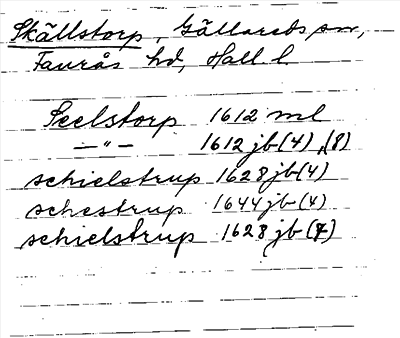 Skällstorp, Gällareds sn,
Faurås hd, Hall. l.
Scelstorp 1612 ml
—"— 1612 jb(4), (8)
schielstrup 1628 jb(4)
schestrup 1644 jb(4)
schielstrup 1628 jb(8)